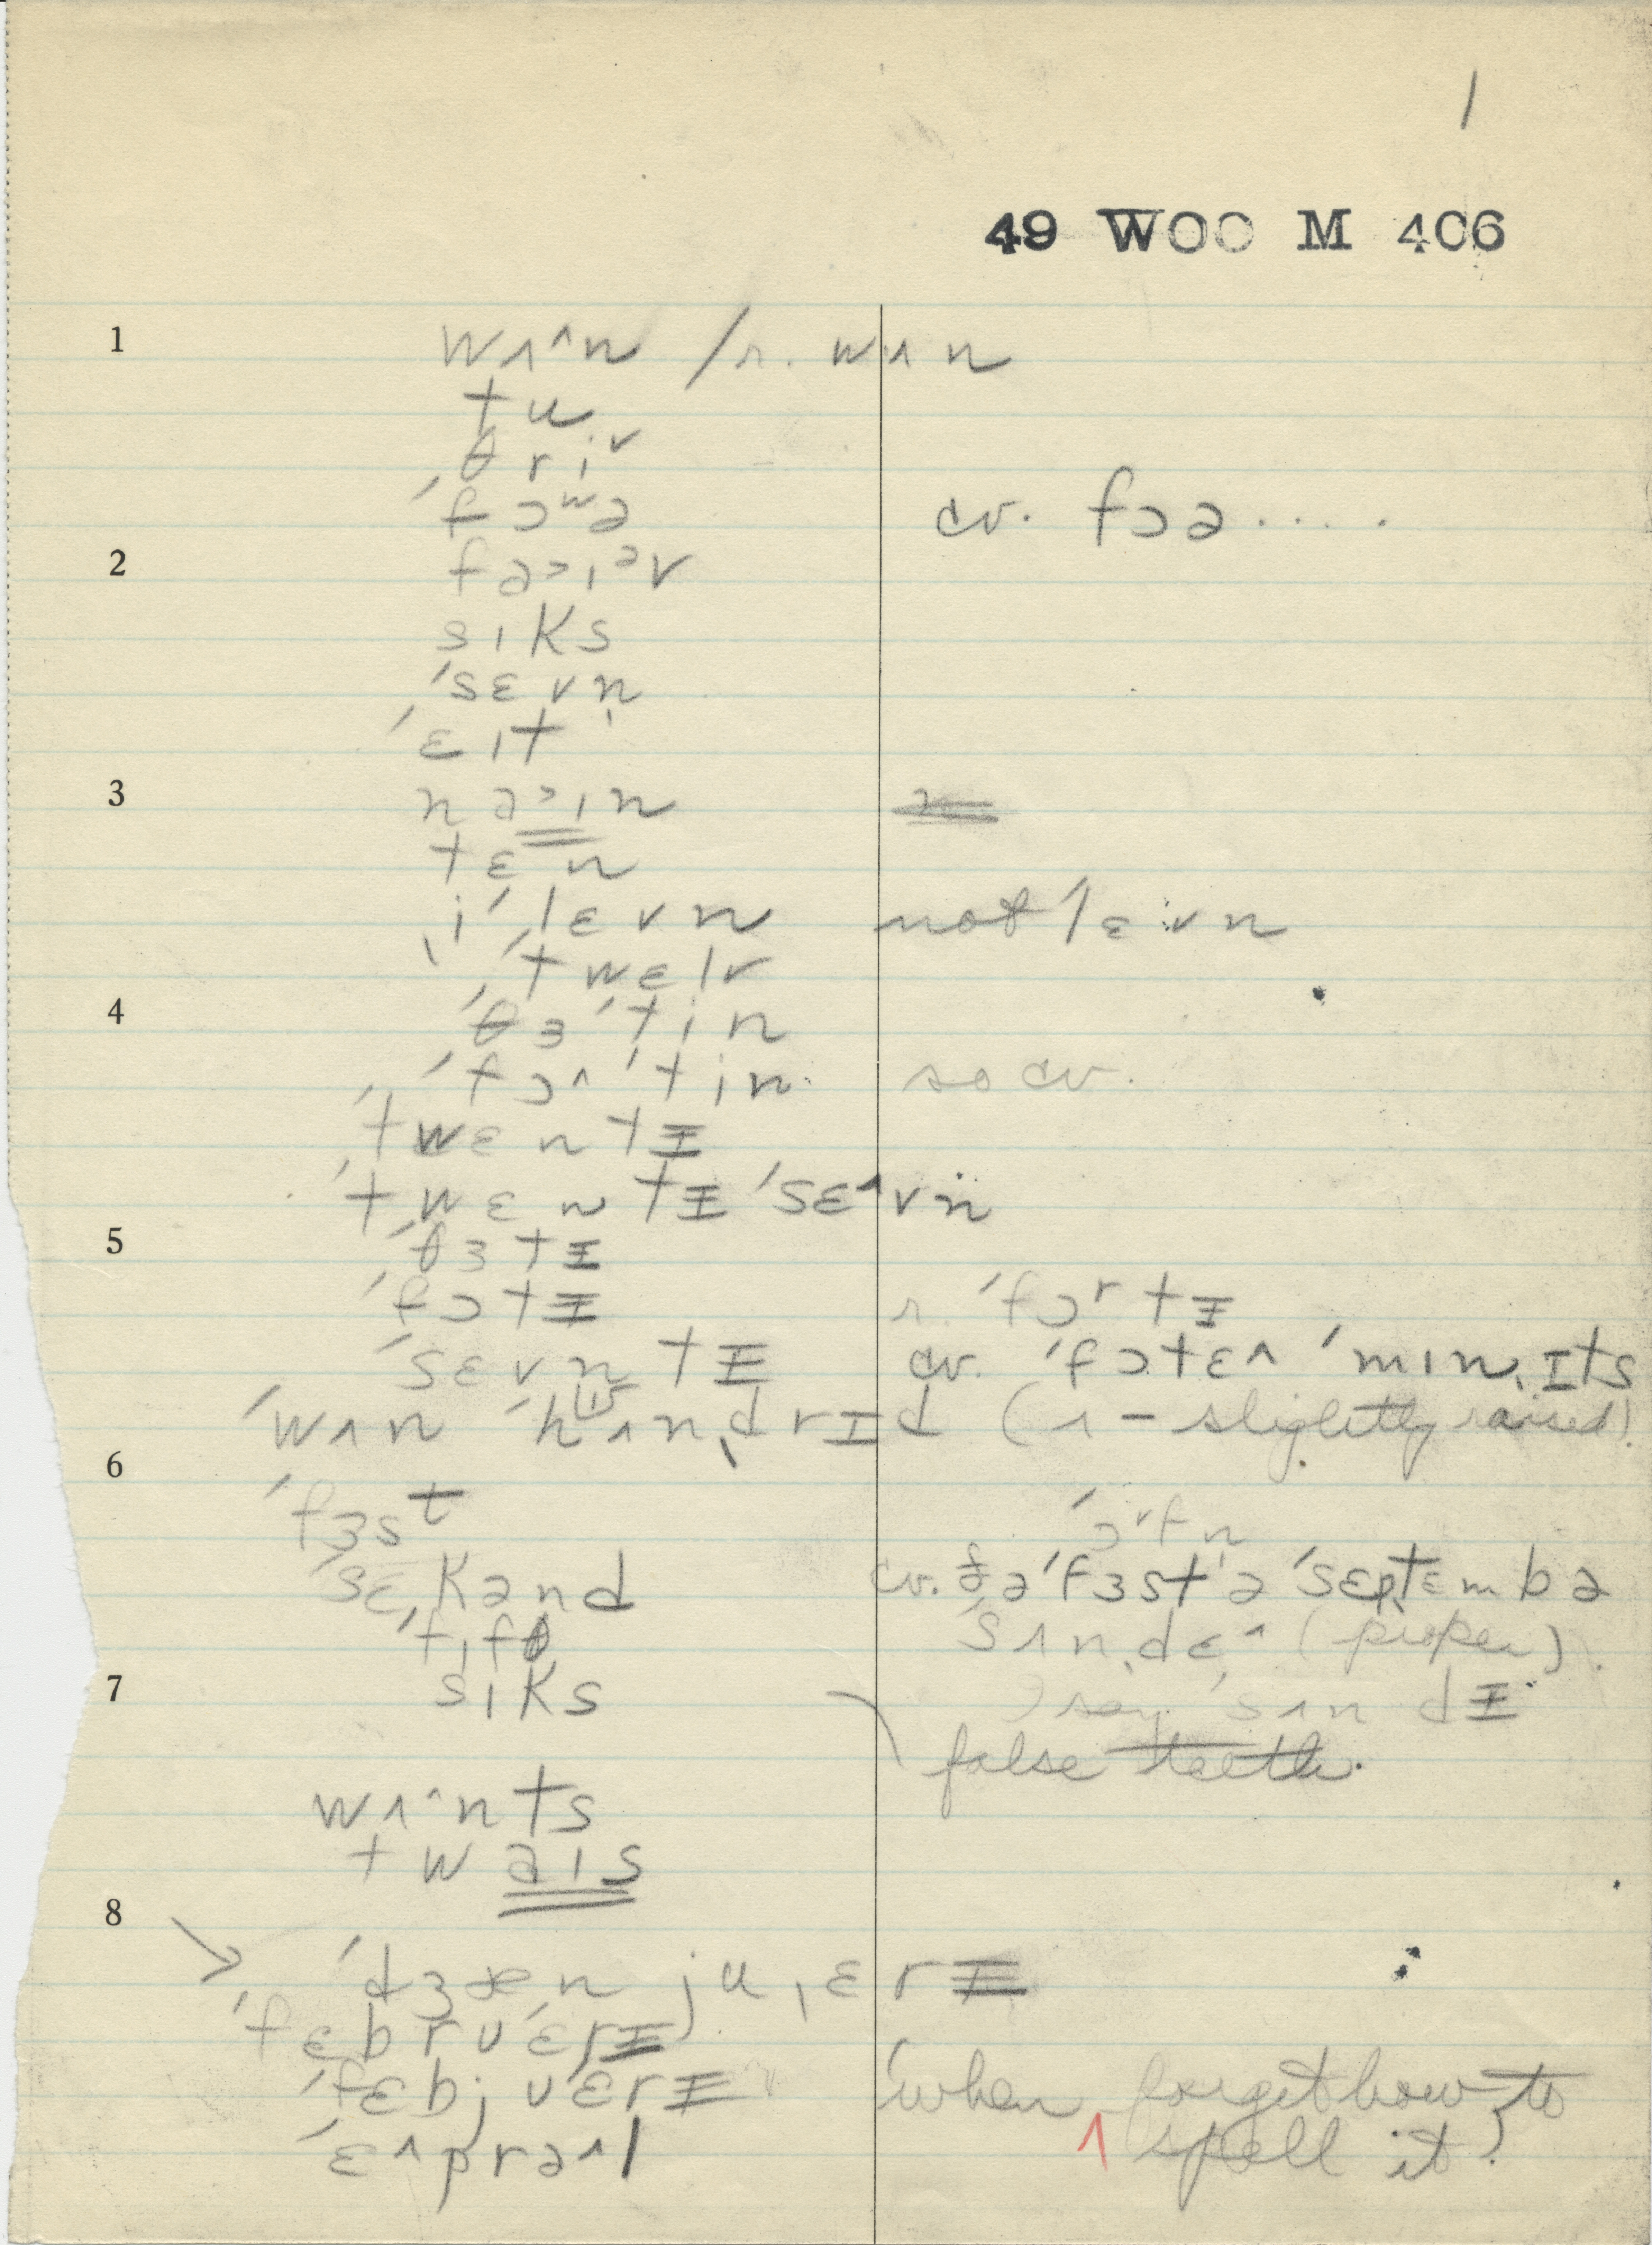 1
49 WOO M 406
1 wʌ^n /r. wʌn
tu
θriᵛ
ˈfɔʷə cv. fɔə....
2 fə>ɪᵊv
sɪks
ˈsɛvn̩
ˈɛɪt
3 nə>ɪn
tɛn
ˌiˈlɛvn not ˈlɛvn
ˈtwɛlv
4 ˈθɜˈtin
ˈfɔ^ˈtin so cv.
ˈtwɛntɪ
ˈtwɛntɪˈsɛ^vn
5 ˈθɜtɪ
ˈfɔtɪ r. ˈfɔʳtɪ
ˈsɛvntɪ cv. ˈfɔtɛ^ ˈmɪnˌɪts
ˈwʌn ˈhʌnˌdrɪd (ʌ - slightly raised).
6
ˈfɜsᵗ ˈɔᵛfn̩
ˈsɛˌkənd cv. ðəˈfɜstə ˈsɛptɛmbə
ˈfɪfθ ˈsʌnˌdɛ^ (proper).
7 sɪks say ˈsʌndɪ
false teeth.
wʌ^nts
twəɪs
8
ˈdʒænjuˌɛrɪ
ˈfɛbruˈɛrɪ
ˈfɛbjuˈɛrɪ (when ^ forget how to
ˈɛ^prə^l spell it)